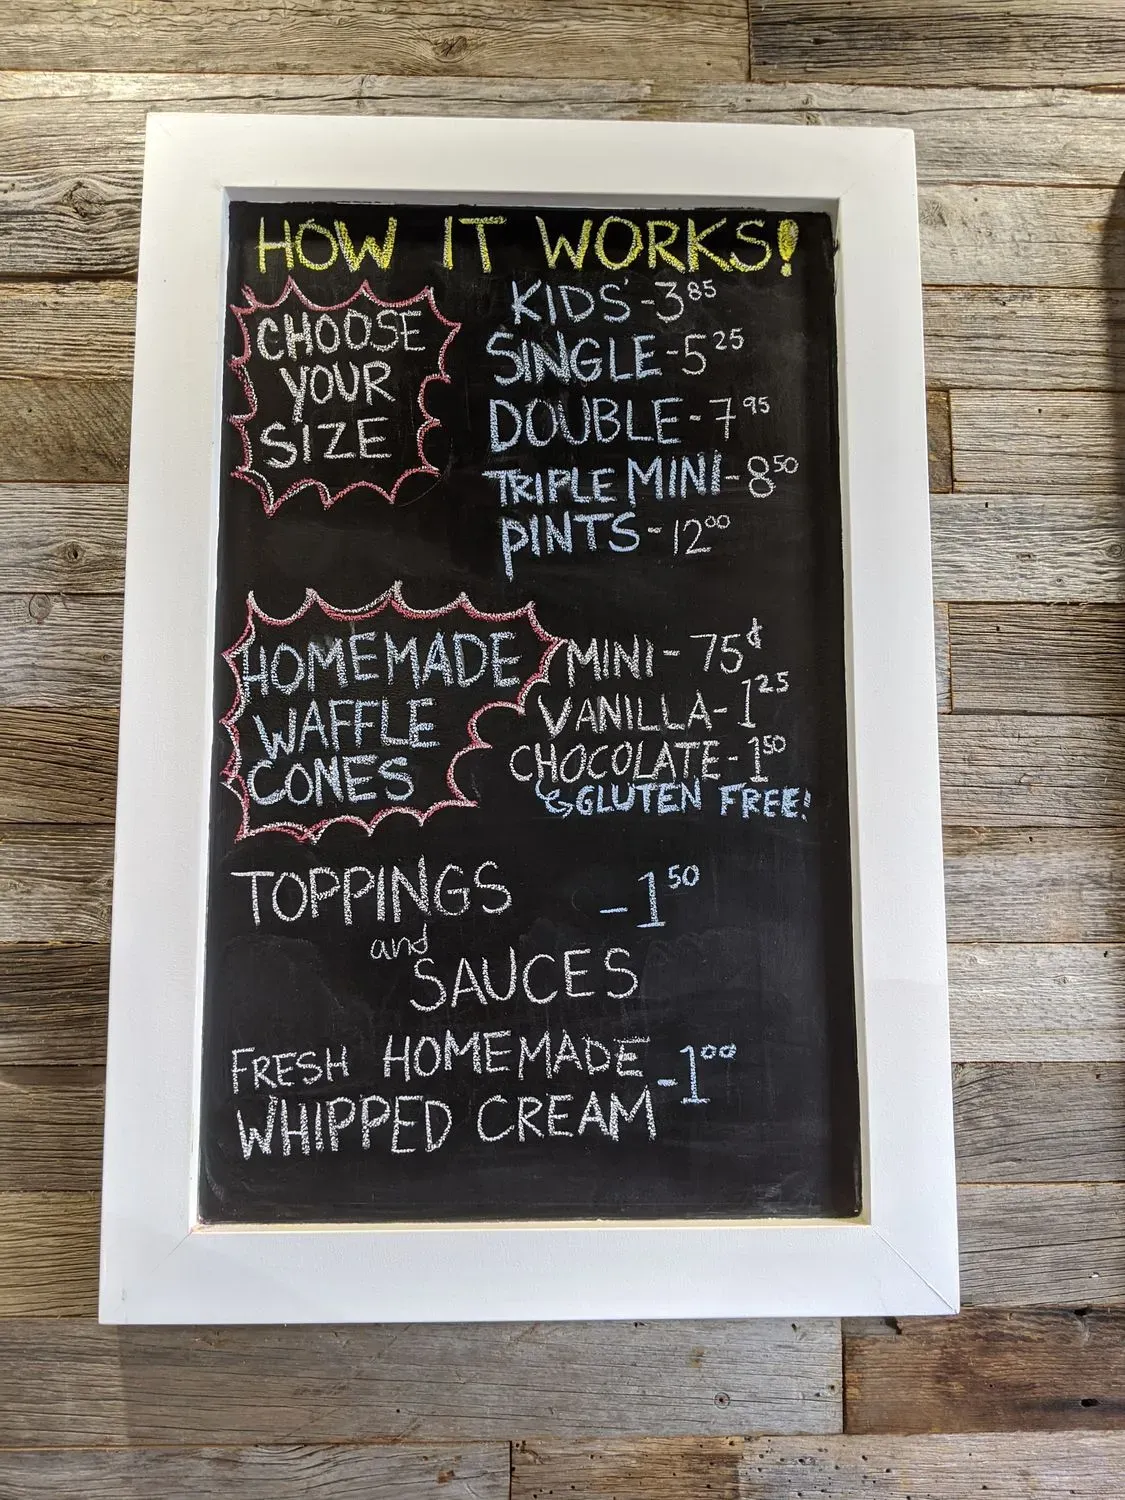 HOW IT WORKS!
CHOOSE
YOUR
SIZE
KIDS' - 3 85
SINGLE - 5 25
DOUBLE - 7 95
TRIPLE MINI - 8 50
PINTS - 12 00
HOMEMADE
WAFFLE
CONES
MINI - 75¢
VANILLA - 1 25
CHOCOLATE - 1 50
GLUTEN FREE!
TOPPINGS - 1 50
and
SAUCES
FRESH HOMEMADE
WHIPPED CREAM - 1 00